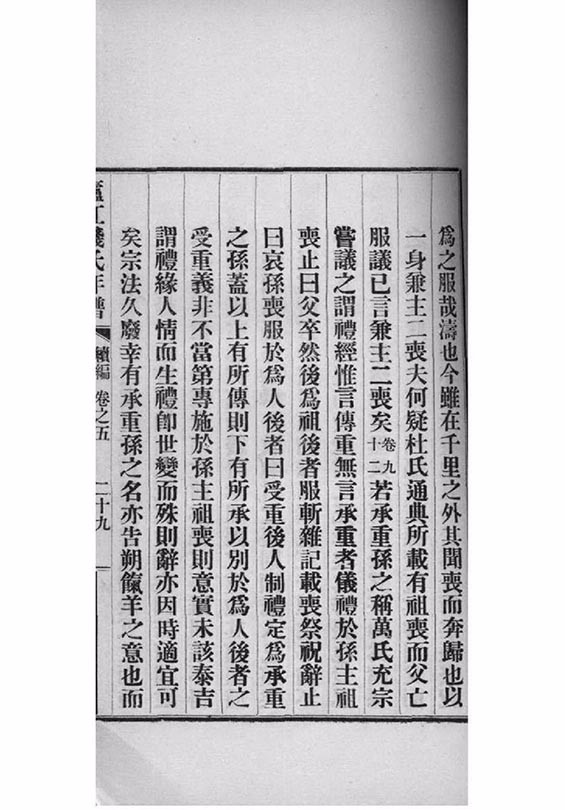 爲之服哉濤也今雖在千里之外其聞喪而奔歸也以
一身兼主二喪夫何疑杜氏通典所載有祖喪而父亡
服議已言兼主二喪矣卷九十二若承重孫之稱萬氏充宗
嘗議之謂禮經惟言傳重無言承重者儀禮於孫主祖
喪止曰父卒然後爲祖後者服斬雜記載喪祭祝辭止
曰哀孫喪服於爲人後者曰受重後人制禮定爲承重
之孫蓋以上有所傳則下有所承以別於爲人後者之
受重義非不當第專施於孫主祖喪則意實未該泰吉
謂禮緣人情而生禮卽世變而殊則辭亦因時適宜可
矣宗法久廢幸有承重孫之名亦告朔餼羊之意也而
廬江錢氏年譜 續編 卷之五 二十九